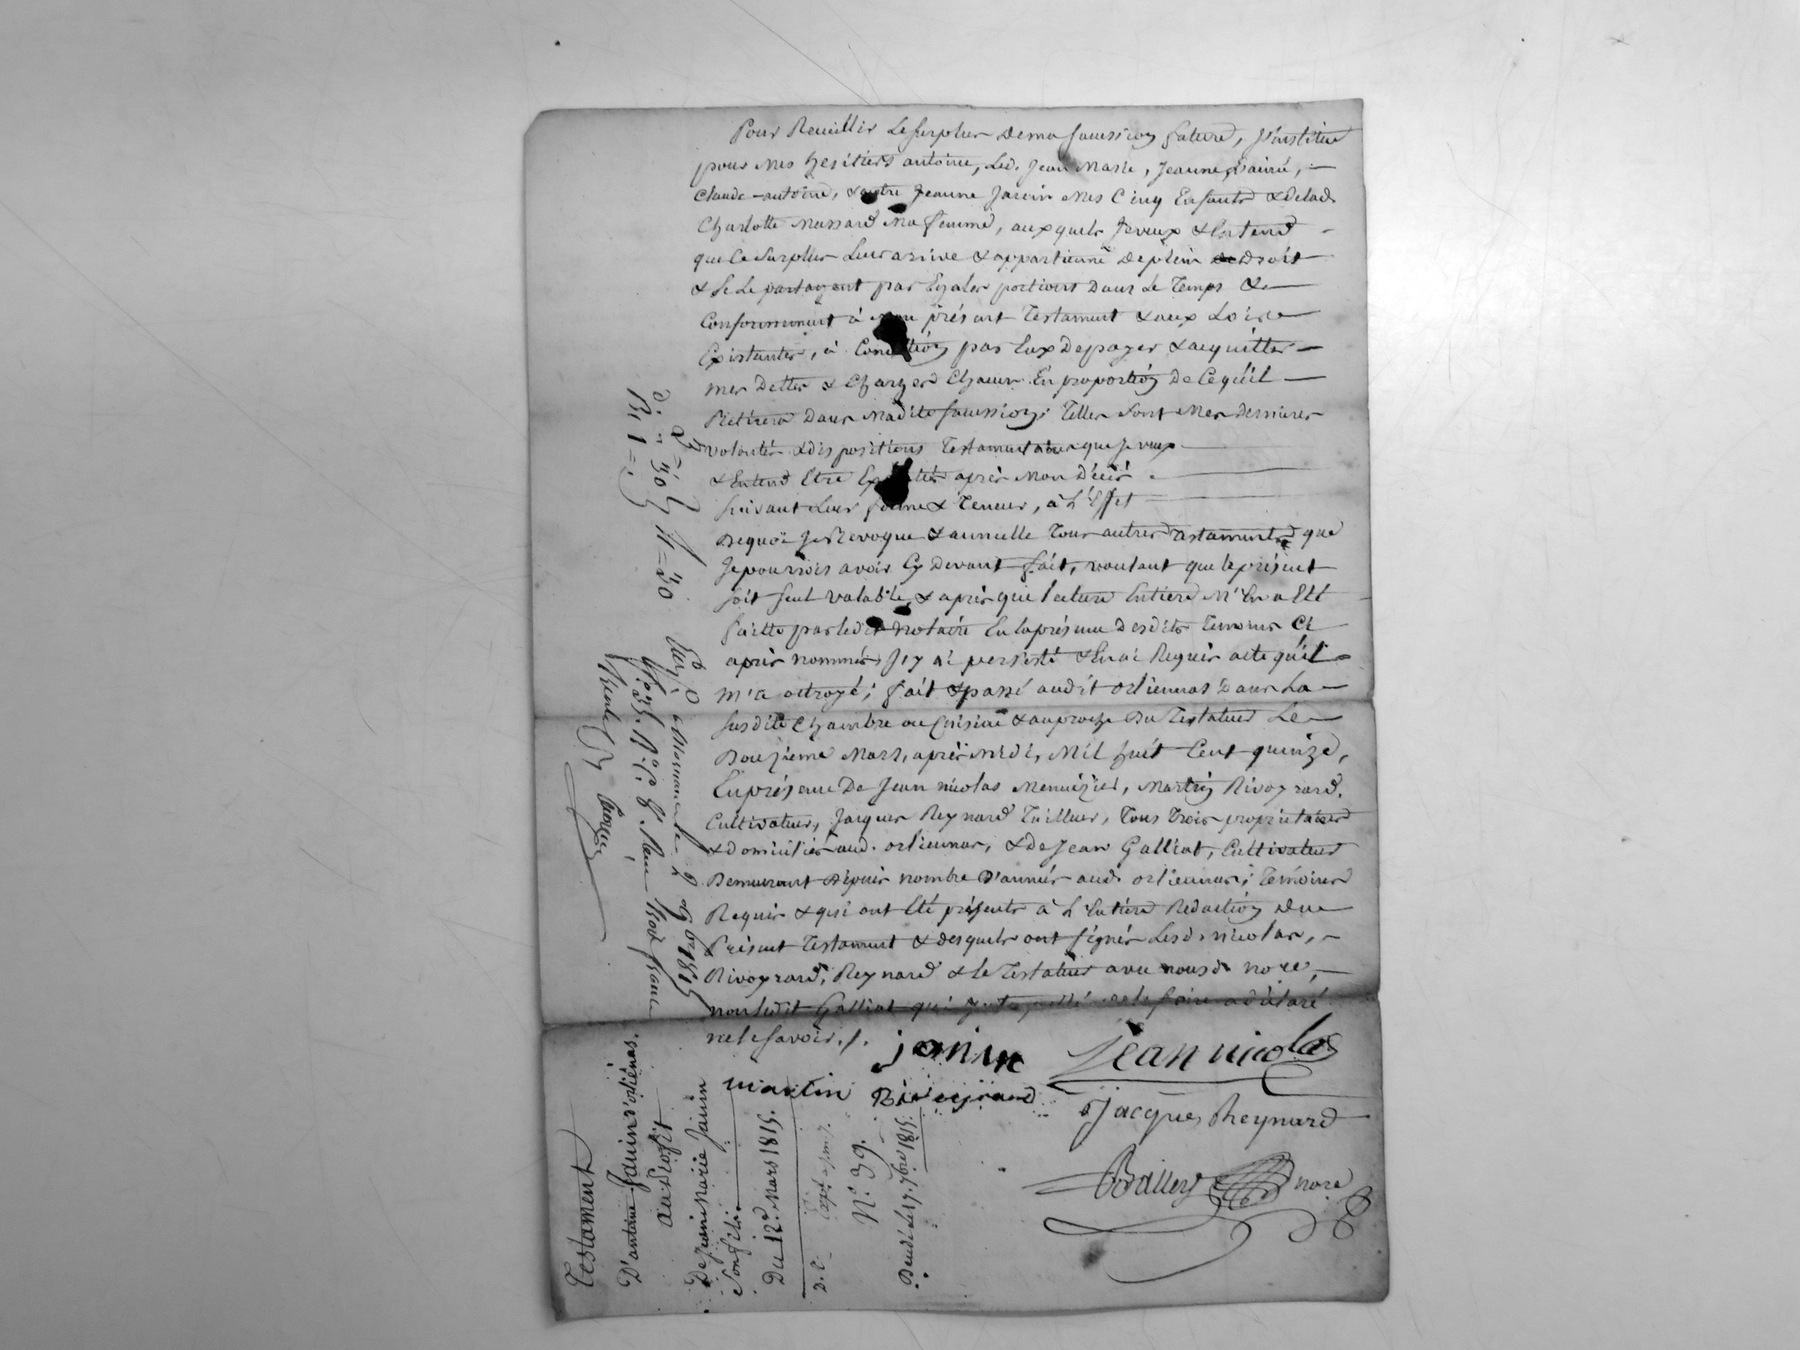 Pour Recueillir Le surplus De ma succession future, J'institue
pour Mes heritiers antoine, Led. Jean Marie, Jeanne, Pairié, —
Claude-antoine, & autre Jeanne Janin Mes Cinq Enfants & De lad.
Charlotte Mussard Ma femme, auxquels Je veux & Entend
que Ce surplus Leur arrive & appartienne De plein Droit
& Se Le partagent par Egales portions Dans Le Temps &
Conformement à mon présent Testament & aux Loix
Existantes, à Condition par Eux De payer & acquitter —
mes Dettes & Charges Chacun En proportion De Ce qu'il —
Retirera Dans Madite succession; Telles sont Mes dernieres
volontés & dispositions Testamentaires que Je veux
& Entend Etre Executés après Mon Décès
suivant Leur forme & Teneur, à L'Effet
De quoi Je Revoque & annulle Tous autres Testaments que
Je pourrois avoir Cy Devant fait, voulant que le présent
soit seul valable, & après que lecture Entiere M'En a Eté
faitte par ledit Notaire En la présence Desdits Temoins Ci
après nommés, J'y ai persisté & En ai Requis acte qu'il
m'a octroyé; fait & passé audit orlienas Dans La —
susdite Chambre ou Cuisine & auproche Du Testateur Le
Douzieme Mars, après Midi, Mil huit Cent quinze,
En présence De Jean nicolas Menuizier, Martin Rivoyrard,
Cultivateur, Jacques Reynard Tailleur, Tous Trois propriétaires
& domiciliés aud. orlienas, & de Jean Galliat, Cultivateur
Demeurant Depuis nombre D'années aud. orlienas; Temoins
Requis & qui ont Eté présents à L'Entiere Redaction Du
Présent Testament & desquels ont signés Lesd. nicolas, —
Rivoyrard, Reynard & le Testateur avec nousd. nore, —
non Ledit Galliat qui Interpellé de le faire a déclaré
ne le savoir./.
janin Jean nicolas
martin Rivoyrard
Jacques Rheynard
Bailly nore
Testament
D'antoine Janin d'orliénas.
au Profit
De Jean Marie Janin
son fils.
Du 12.d Mars 1815.
N.° 39.